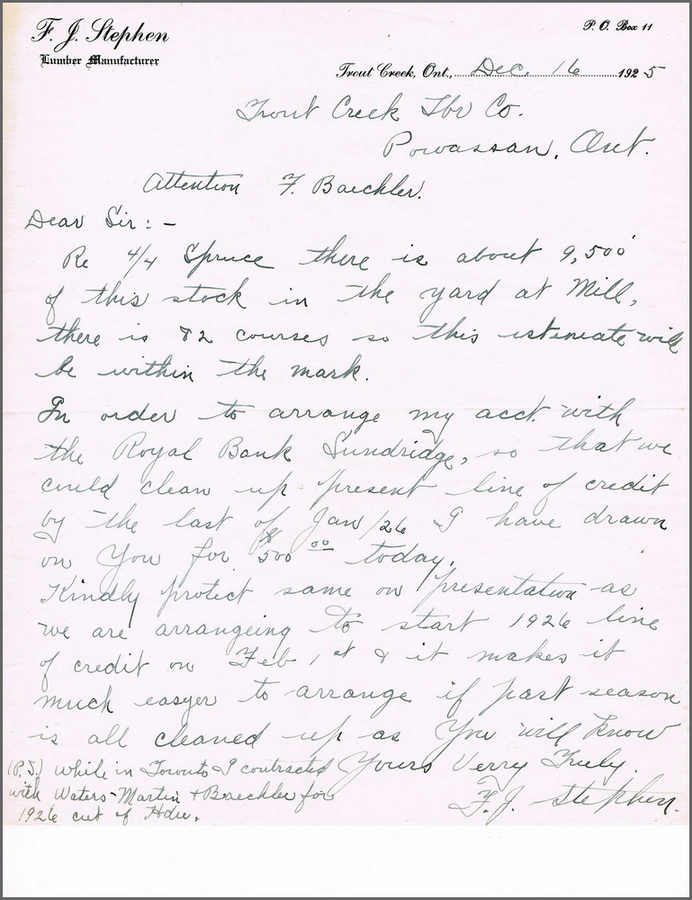 F. J. Stephen
P. O. Box 11
Lumber Manufacturer
Trout Creek, Ont., Dec. 16 1925
Trout Creek Lbr Co.
Powassan, Ont.
Attention F. Baechler.
Dear Sir:-
Re 4/4 Spruce there is about 9,500'
of this stock in the yard at Mill,
there is 82 courses so this estemiate will
be within the mark.
In order to arrange my acct. with
the Royal Bank Sundridge, so that we
could clean up present line of credit
by the last of Jan/26 I have drawn
on You for $500.00 today.
Kindly protect same on presentation as
we are arrangeing to start 1926 line
of credit on Feb 1st & it makes it
much easyer to arrange if past season
is all cleaned up as You will know
Yours Verry Truly
F. J. Stephen.
(P.S.) while in Toronto I contracted
with Waters-Martin & Baechler for
1926 cut of Hdw.